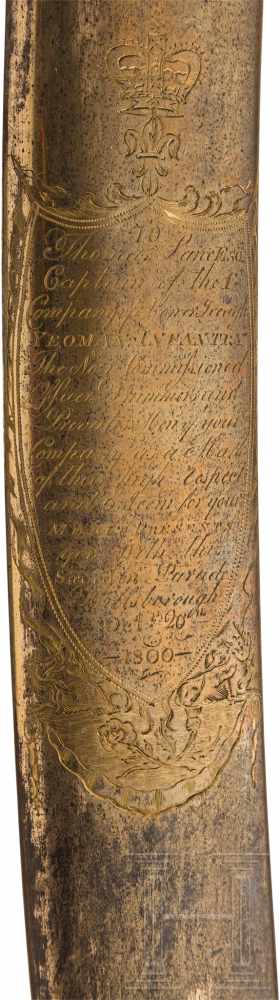 TO
Thomas Lane Esq
Captain of the 1
Company
YEOMAN INFANTRY
The Non Commissioned
Officers Drummers and
Privates of your
Company as a Mark
of their high respect
and esteem for your
MERIT PRESENTS
you with this
Sword in
Hillsborough
Oct. 20th
1800